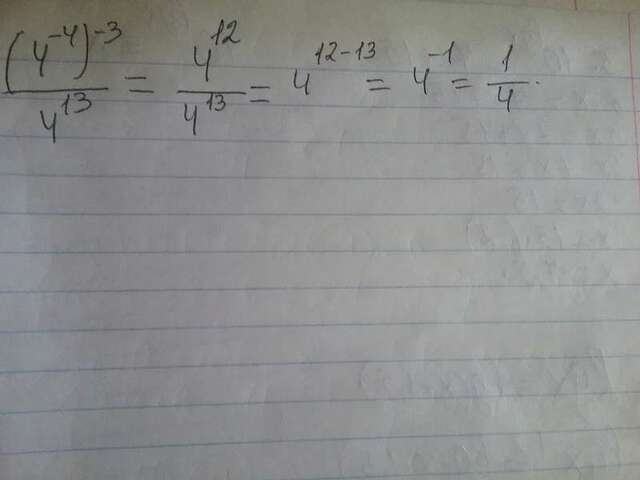 (4^-4)^-3 / 4^13 = 4^12 / 4^13 = 4^12-13 = 4^-1 = 1/4.